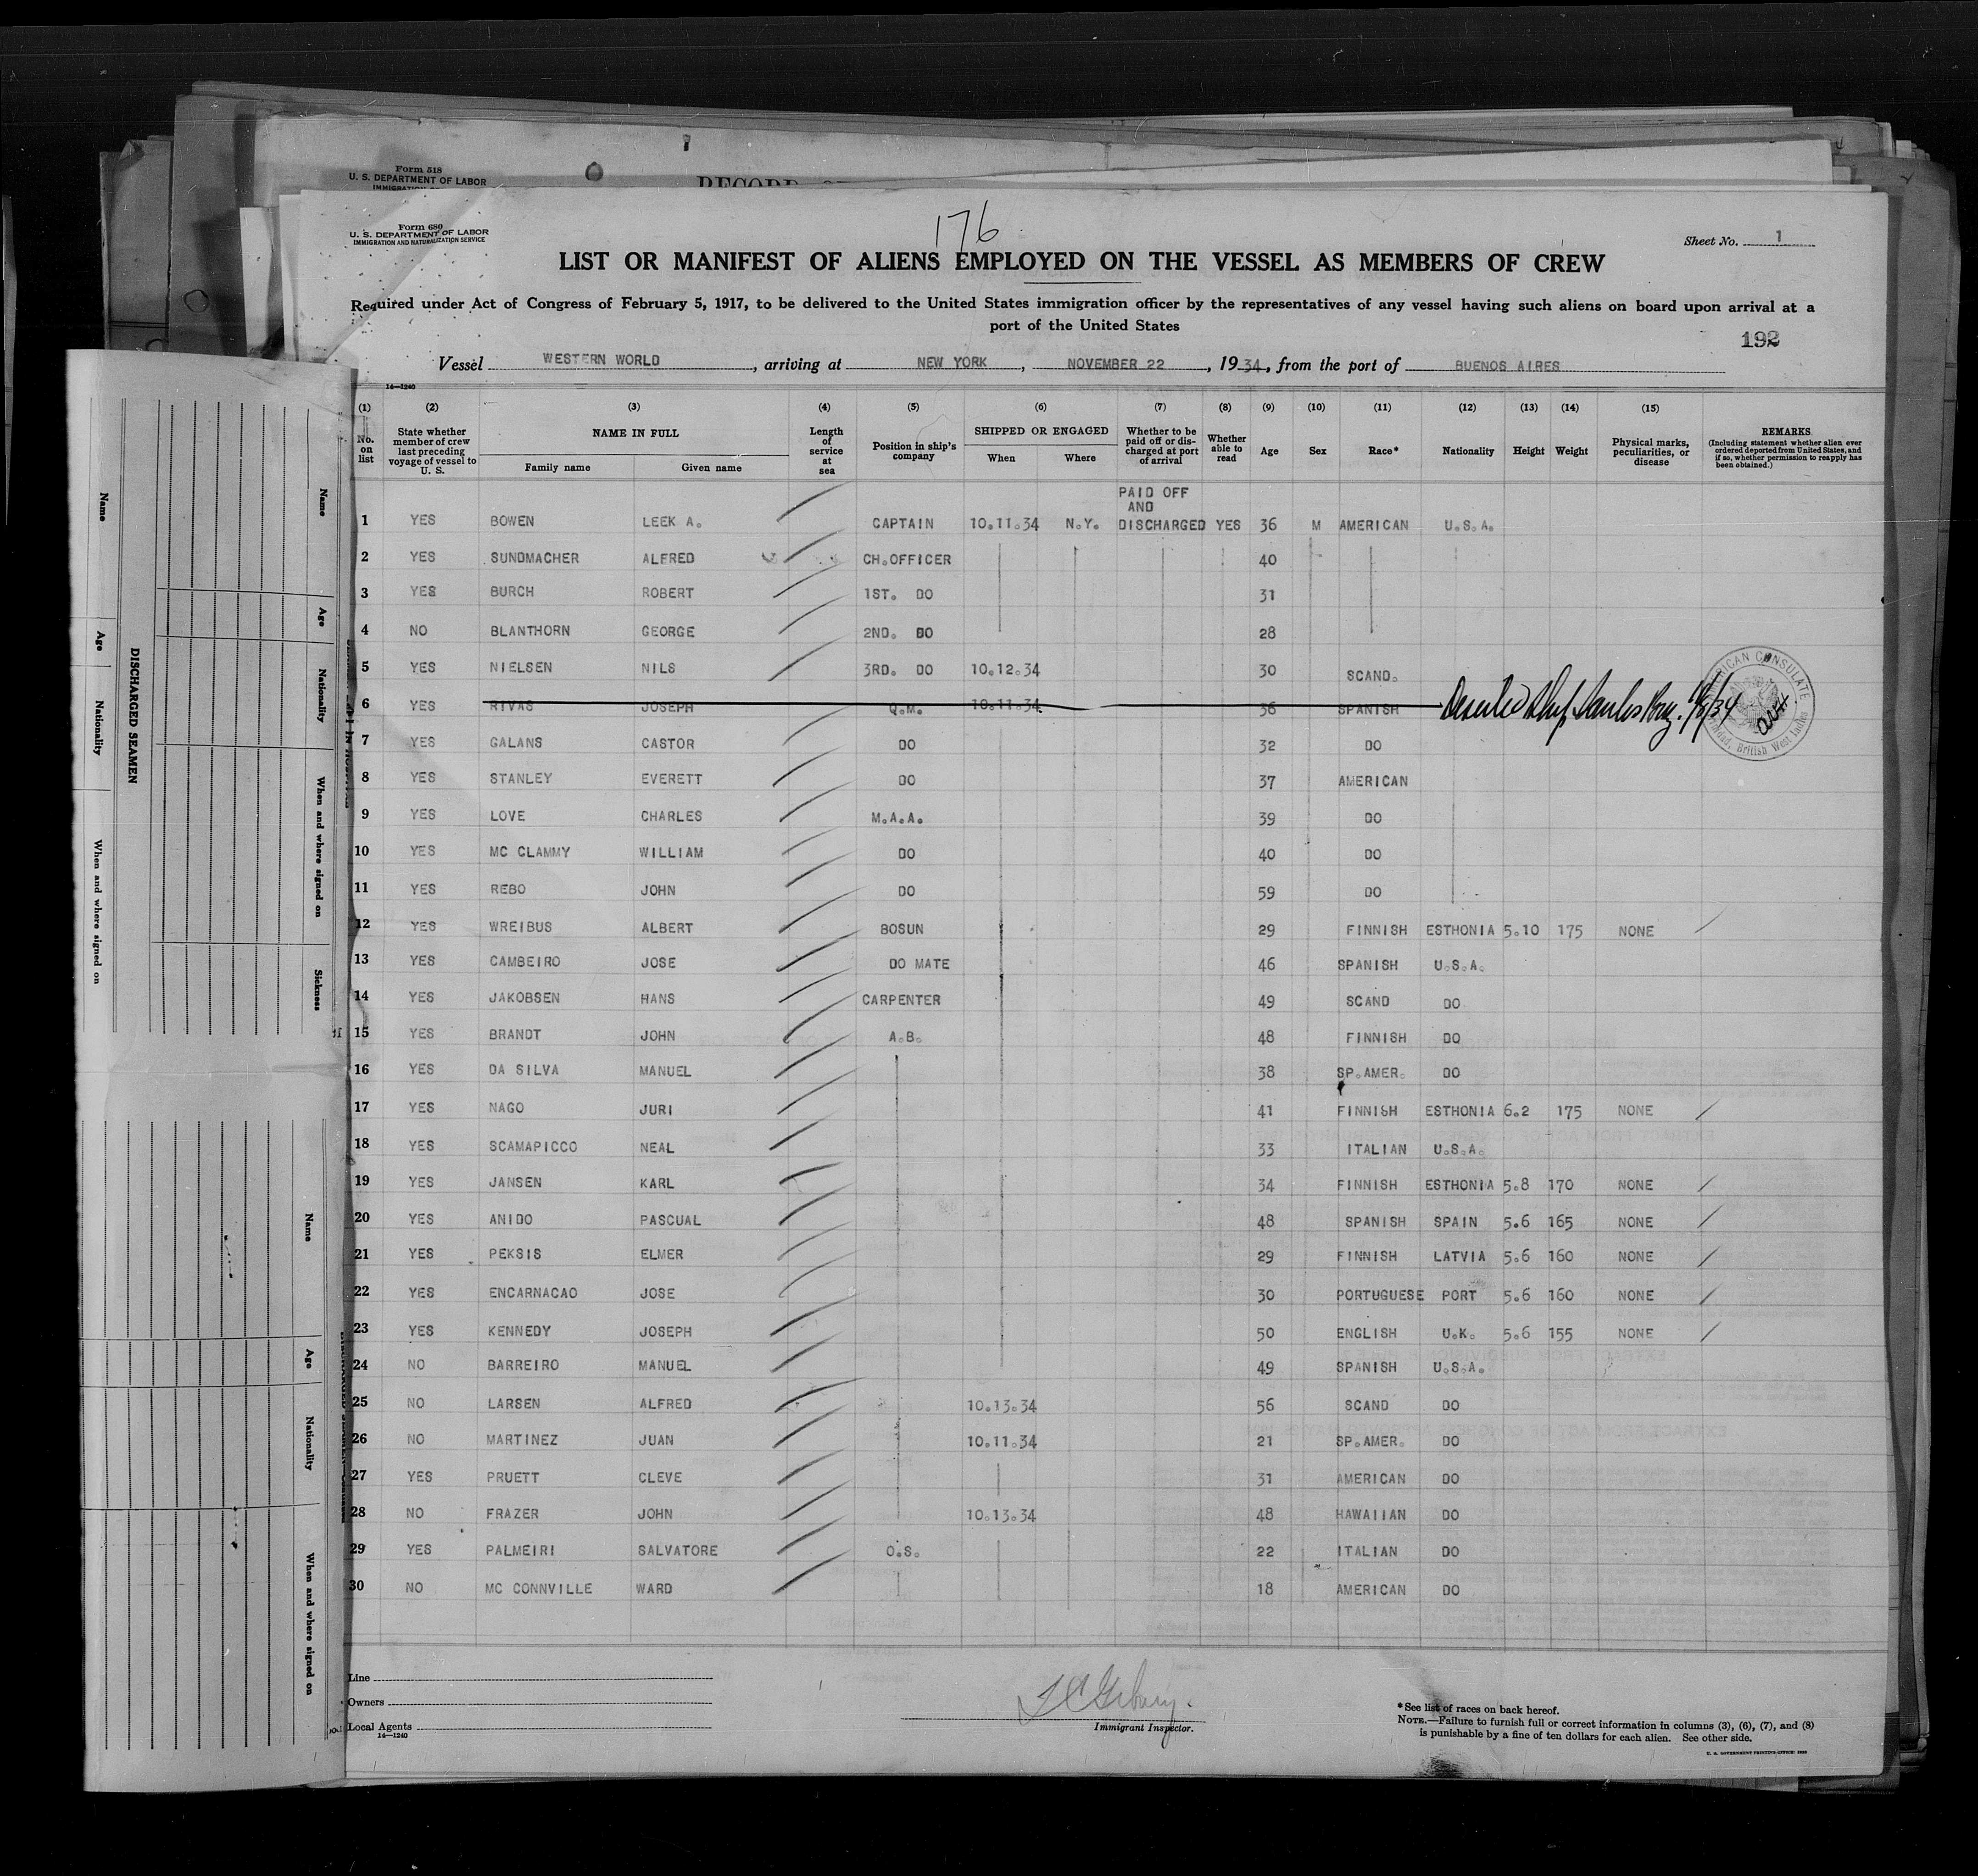 Form 518
U. S. DEPARTMENT OF LABOR
Form 680
U. S. DEPARTMENT OF LABOR
IMMIGRATION AND NATURALIZATION SERVICE
176
Sheet No. 1
LIST OR MANIFEST OF ALIENS EMPLOYED ON THE VESSEL AS MEMBERS OF CREW
Required under Act of Congress of February 5, 1917, to be delivered to the United States immigration officer by the representatives of any vessel having such aliens on board upon arrival at a
port of the United States
192
Vessel WESTERN WORLD, arriving at NEW YORK, NOVEMBER 22, 1934, from the port of BUENOS AIRES
14—1240
(1) (2) (3) (4) (5) (6) (7) (8) (9) (10) (11) (12) (13) (14) (15)
No. on list State whether member of crew last preceding voyage of vessel to U. S. NAME IN FULL Family name Given name Length of service at sea Position in ship's company SHIPPED OR ENGAGED When Where Whether to be paid off or discharged at port of arrival Whether able to read Age Sex Race* Nationality Height Weight Physical marks, peculiarities, or disease REMARKS (Including statement whether alien ever ordered deported from United States, and if so, whether permission to reapply has been obtained.)
PAID OFF
AND
1 YES BOWEN LEEK A. CAPTAIN 10.11.34 N.Y. DISCHARGED YES 36 M AMERICAN U.S.A.
2 YES SUNDMACHER ALFRED CH.OFFICER 40
3 YES BURCH ROBERT 1ST. DO 31
4 NO BLANTHORN GEORGE 2ND. DO 28
5 YES NIELSEN NILS 3RD. DO 10.12.34 30 SCAND.
6 YES RIVAS JOSEPH Q.M. 10.11.34 36 SPANISH Deserted Ship Santos
7 YES GALANS CASTOR DO 32 DO
8 YES STANLEY EVERETT DO 37 AMERICAN
9 YES LOVE CHARLES M.A.A. 39 DO
10 YES MC CLAMMY WILLIAM DO 40 DO
11 YES REBO JOHN DO 59 DO
12 YES WREIBUS ALBERT BOSUN 29 FINNISH ESTHONIA 5.10 175 NONE
13 YES CAMBEIRO JOSE DO MATE 46 SPANISH U.S.A.
14 YES JAKOBSEN HANS CARPENTER 49 SCAND DO
15 YES BRANDT JOHN A.B. 48 FINNISH DO
16 YES DA SILVA MANUEL 38 SP.AMER. DO
17 YES NAGO JURI 41 FINNISH ESTHONIA 6.2 175 NONE
18 YES SCAMAPICCO NEAL 33 ITALIAN U.S.A.
19 YES JANSEN KARL 34 FINNISH ESTHONIA 5.8 170 NONE
20 YES ANIDO PASCUAL 48 SPANISH SPAIN 5.6 165 NONE
21 YES PEKSIS ELMER 29 FINNISH LATVIA 5.6 160 NONE
22 YES ENCARNACAO JOSE 30 PORTUGUESE PORT 5.6 160 NONE
23 YES KENNEDY JOSEPH 50 ENGLISH U.K. 5.6 155 NONE
24 NO BARREIRO MANUEL 49 SPANISH U.S.A.
25 NO LARSEN ALFRED 10.13.34 56 SCAND DO
26 NO MARTINEZ JUAN 10.11.34 21 SP.AMER. DO
27 YES PRUETT CLEVE 31 AMERICAN DO
28 NO FRAZER JOHN 10.13.34 48 HAWAIIAN DO
29 YES PALMEIRI SALVATORE O.S. 22 ITALIAN DO
30 NO MC CONNVILLE WARD 18 AMERICAN DO
AMERICAN CONSULATE
Trinidad, British West Indies
Line
Owners
Local Agents
14—1240
Immigrant Inspector.
*See list of races on back hereof.
NOTE.—Failure to furnish full or correct information in columns (3), (6), (7), and (8)
is punishable by a fine of ten dollars for each alien. See other side.
U. S. GOVERNMENT PRINTING OFFICE
DISCHARGED SEAMEN
Name Age Nationality When and where signed on
Name Age Nationality When and where signed on Sickness
Name Age Nationality When and where signed on